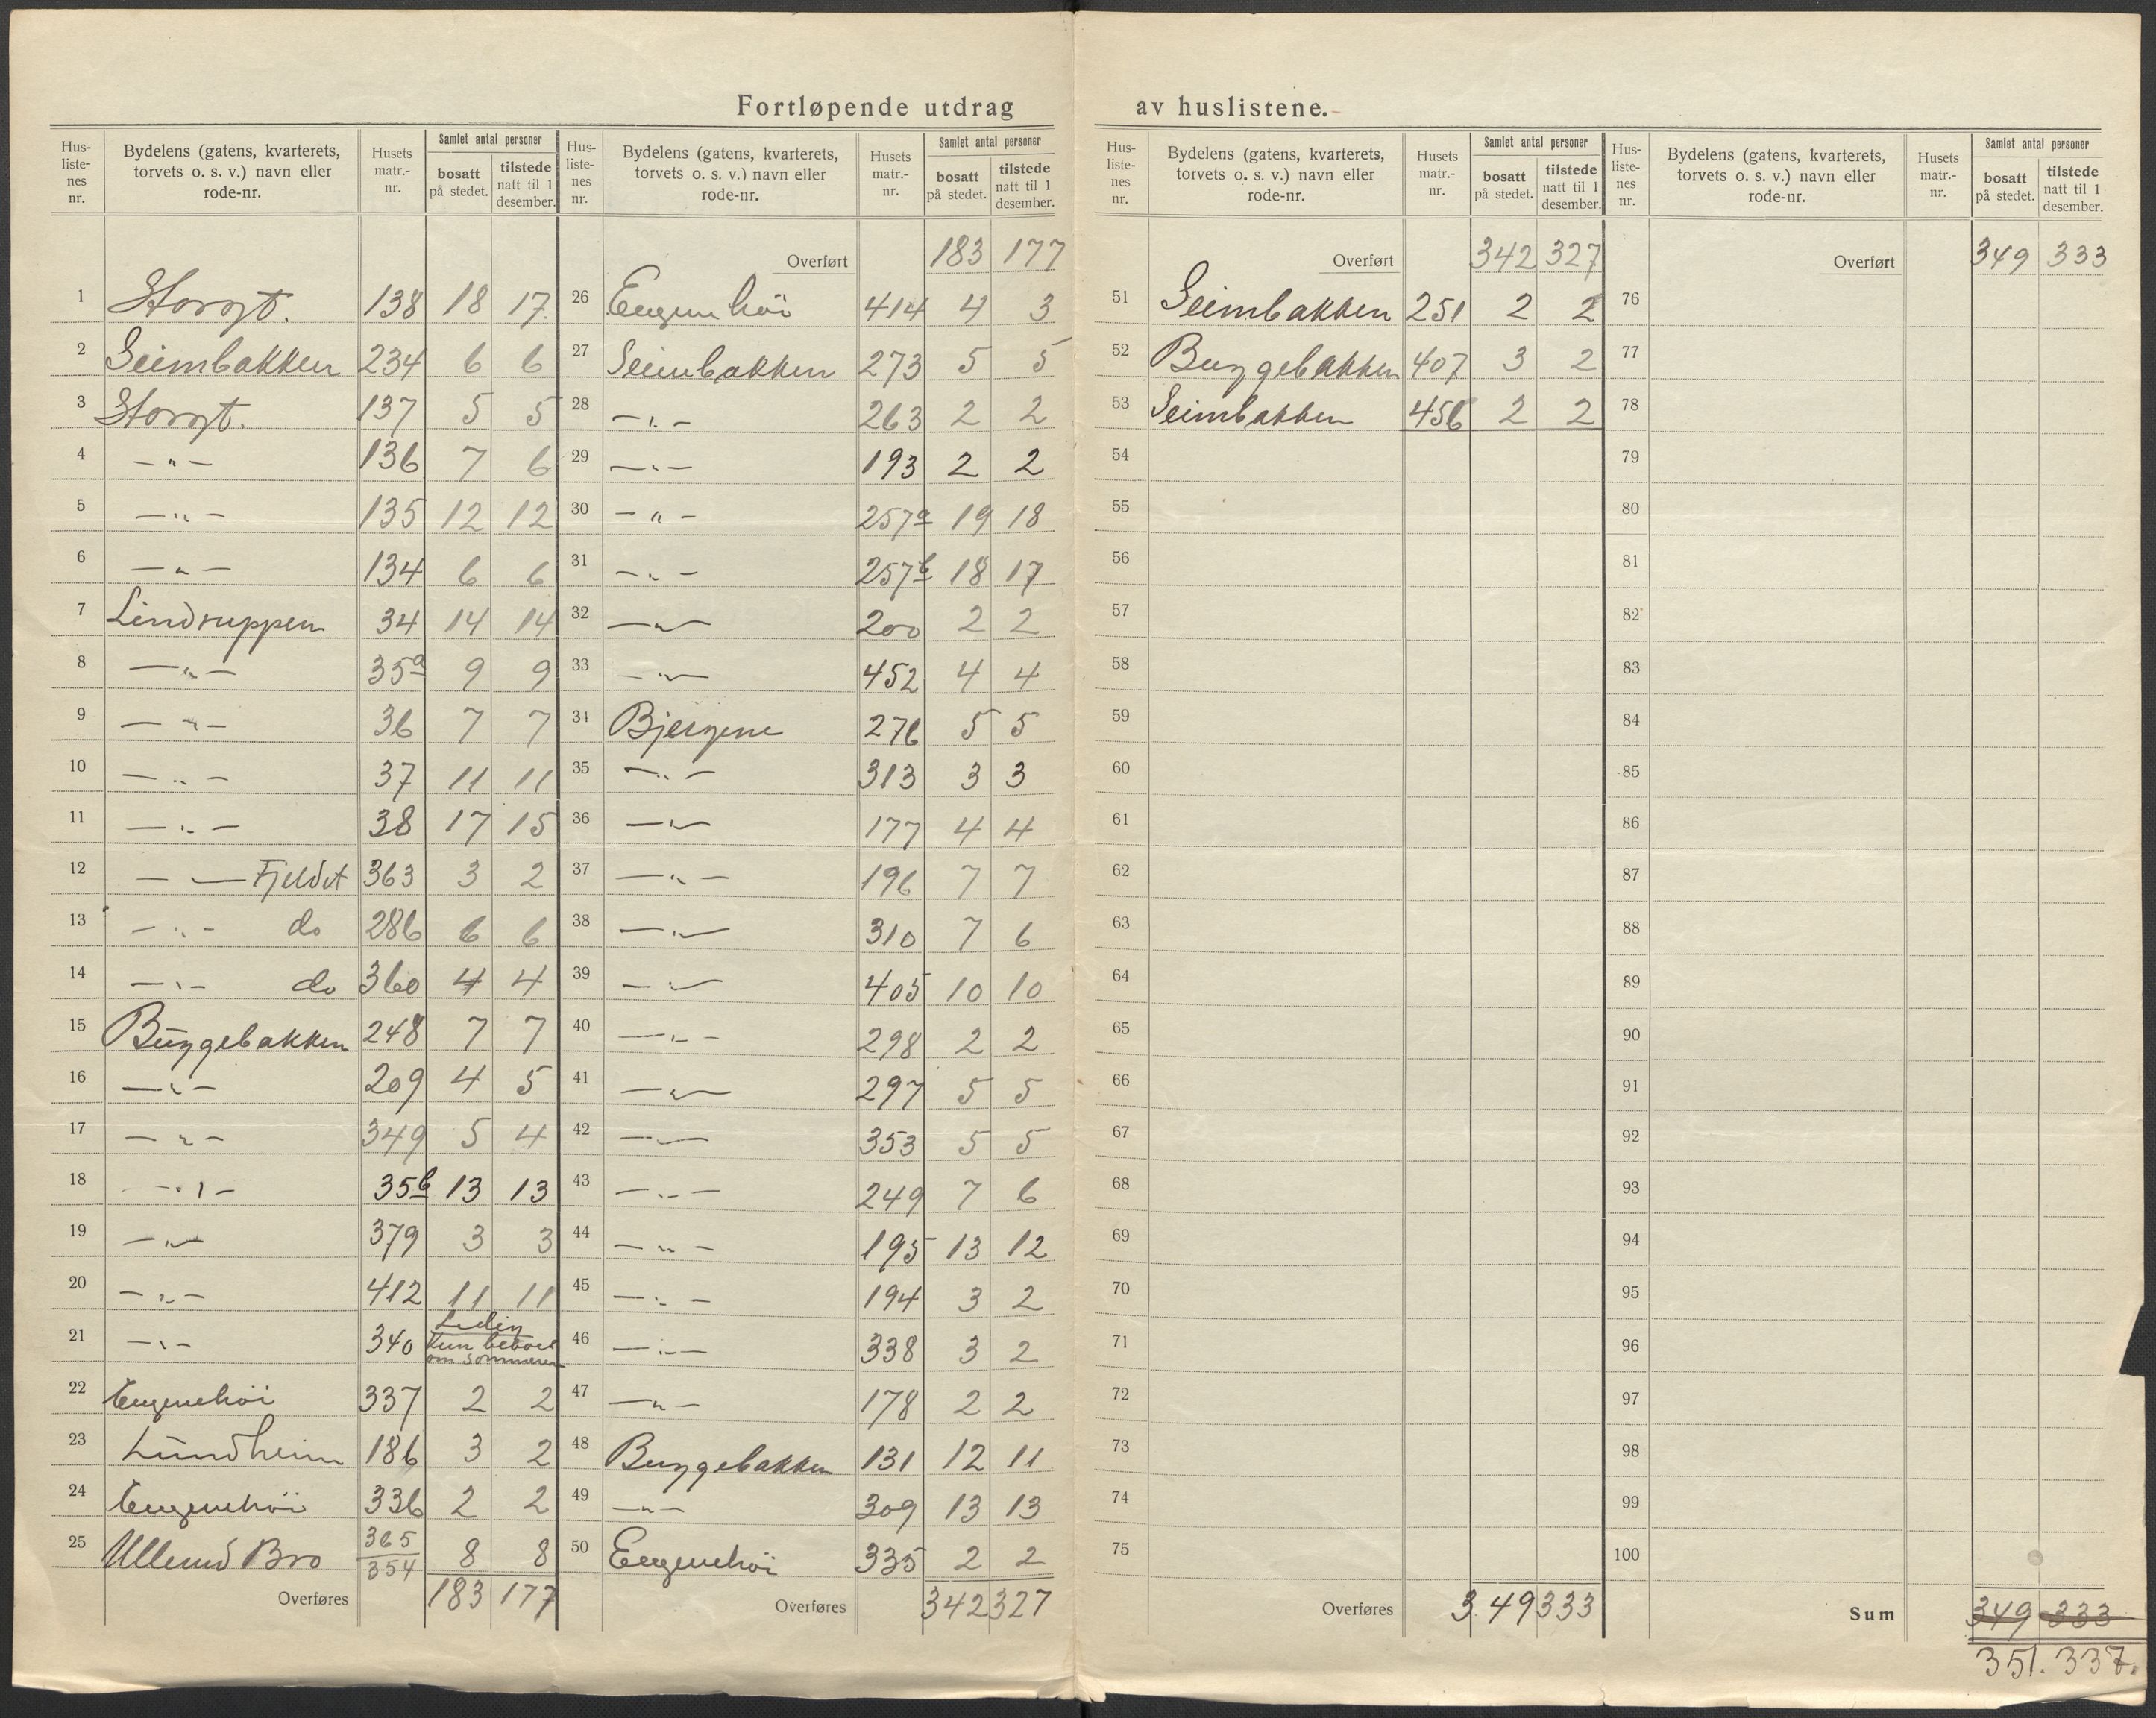 Fortløpende utdrag av huslistene.
Hus-listenes nr. | Bydelens (gatens, kvarterets, torvets o. s. v.) navn eller rode-nr. | Husets matr.-nr. | Samlet antal personer: bosatt på stedet. | tilstede natt til 1 desember.
1 Storgt. 138 18 17
2 Seimbakken 234 6 6
3 Storgt. 137 5 5
4 —"— 136 7 6
5 —"— 135 12 12
6 —"— 134 6 6
7 Lindruppen 34 14 14
8 —"— 35a 9 9
9 —"— 36 7 7
10 —"— 37 11 11
11 —"— 38 17 15
12 —"— Fjeldet 363 3 2
13 —"— do 286 6 6
14 —"— do 360 4 4
15 Buggebakken 248 7 7
16 —"— 209 4 5
17 —"— 349 5 4
18 —"— 35b 13 13
19 —"— 379 3 3
20 —"— 412 11 11
21 —"— 340 Ledig kun beboet om sommeren
22 Eugenehöi 337 2 2
23 Lundheim 186 3 2
24 Eugenehöi 336 2 2
25 Bro 365/354 8 8
Overføres 183 177
Hus-listenes nr. | Bydelens (gatens, kvarterets, torvets o. s. v.) navn eller rode-nr. | Husets matr.-nr. | Samlet antal personer: bosatt på stedet. | tilstede natt til 1 desember.
Overført 183 177
26 Eugenehöi 414 4 3
27 Seimbakken 273 5 5
28 —"— 263 2 2
29 —"— 193 2 2
30 —"— 257a 19 18
31 —"— 257b 18 17
32 —"— 200 2 2
33 —"— 452 4 4
34 Bjergene 276 5 5
35 —"— 313 3 3
36 —"— 177 4 4
37 —"— 196 7 7
38 —"— 310 7 6
39 —"— 405 10 10
40 —"— 298 2 2
41 —"— 297 5 5
42 —"— 353 5 5
43 —"— 249 7 6
44 —"— 195 13 12
45 —"— 194 3 2
46 —"— 338 3 2
47 —"— 178 2 2
48 Buggebakken 131 12 11
49 —"— 309 13 13
50 Eugenehöi 335 2 2
Overføres 342 327
Hus-listenes nr. | Bydelens (gatens, kvarterets, torvets o. s. v.) navn eller rode-nr. | Husets matr.-nr. | Samlet antal personer: bosatt på stedet. | tilstede natt til 1 desember.
Overført 342 327
51 Seimbakken 251 2 2
52 Buggebakken 407 3 2
53 Seimbakken 456 2 2
54
55
56
57
58
59
60
61
62
63
64
65
66
67
68
69
70
71
72
73
74
75
Overføres 349 333
Hus-listenes nr. | Bydelens (gatens, kvarterets, torvets o. s. v.) navn eller rode-nr. | Husets matr.-nr. | Samlet antal personer: bosatt på stedet. | tilstede natt til 1 desember.
Overført 349 333
76
77
78
79
80
81
82
83
84
85
86
87
88
89
90
91
92
93
94
95
96
97
98
99
100
Sum 349 333
351. 337.